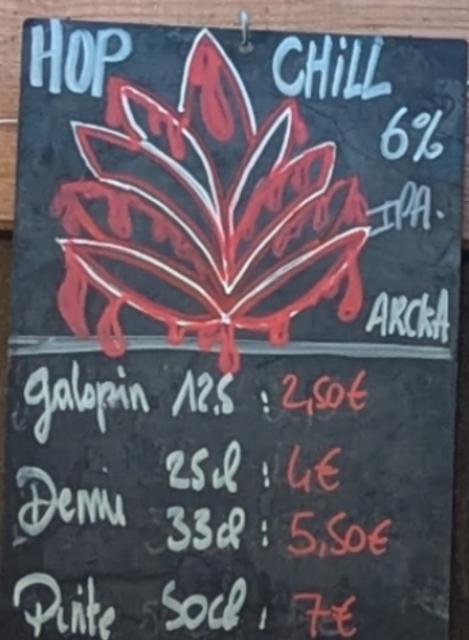 HOP CHiLL
6%
IPA.
ARCKA
galopin 12,5 : 2,50€
25cl : 4€
Demi
33cl : 5,50€
Pinte 50cl : 7€